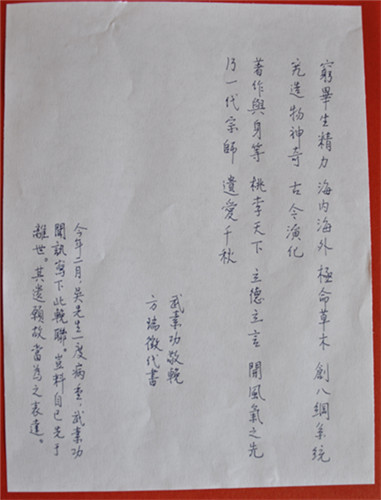 窮畢生精力 海内海外 極命草木 創八綱系統
究造物神奇 古今演化
著作與身等 桃李天下 立德立言 開風氣之先
乃一代宗師 遺愛千秋
武素功敬輓
方瑞徵代書
今年二月，吳先生一度病重，武素功
聞訊寫下此輓聯，豈料自己先于
離世。其遺願故當為之表達。